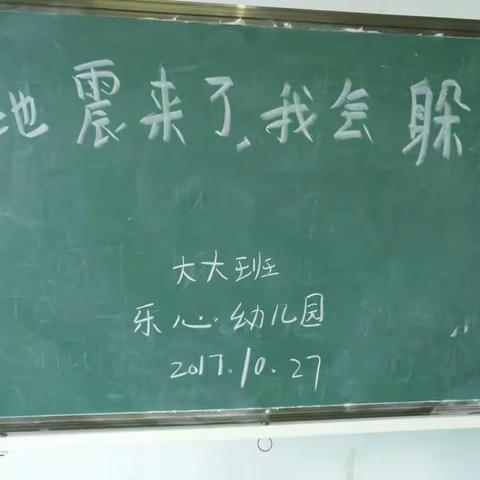 地震来了,我会躲
大大班
乐心幼儿园
2017.10.27